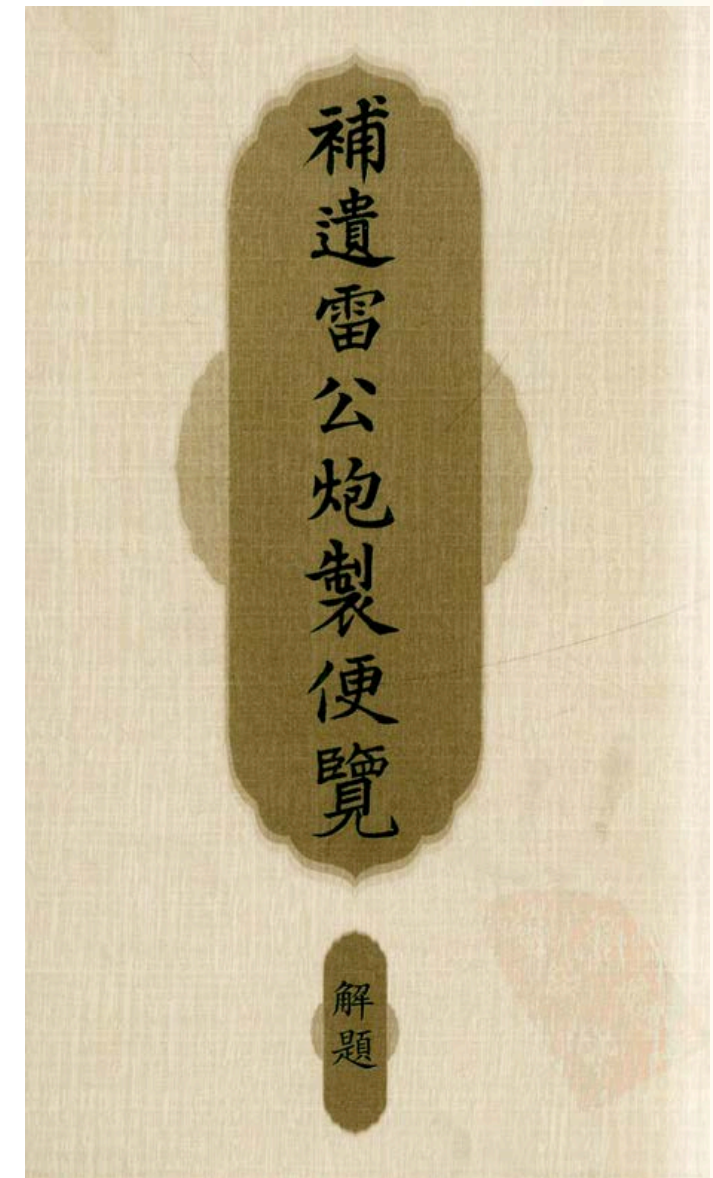 補遺雷公炮製便覽
解題